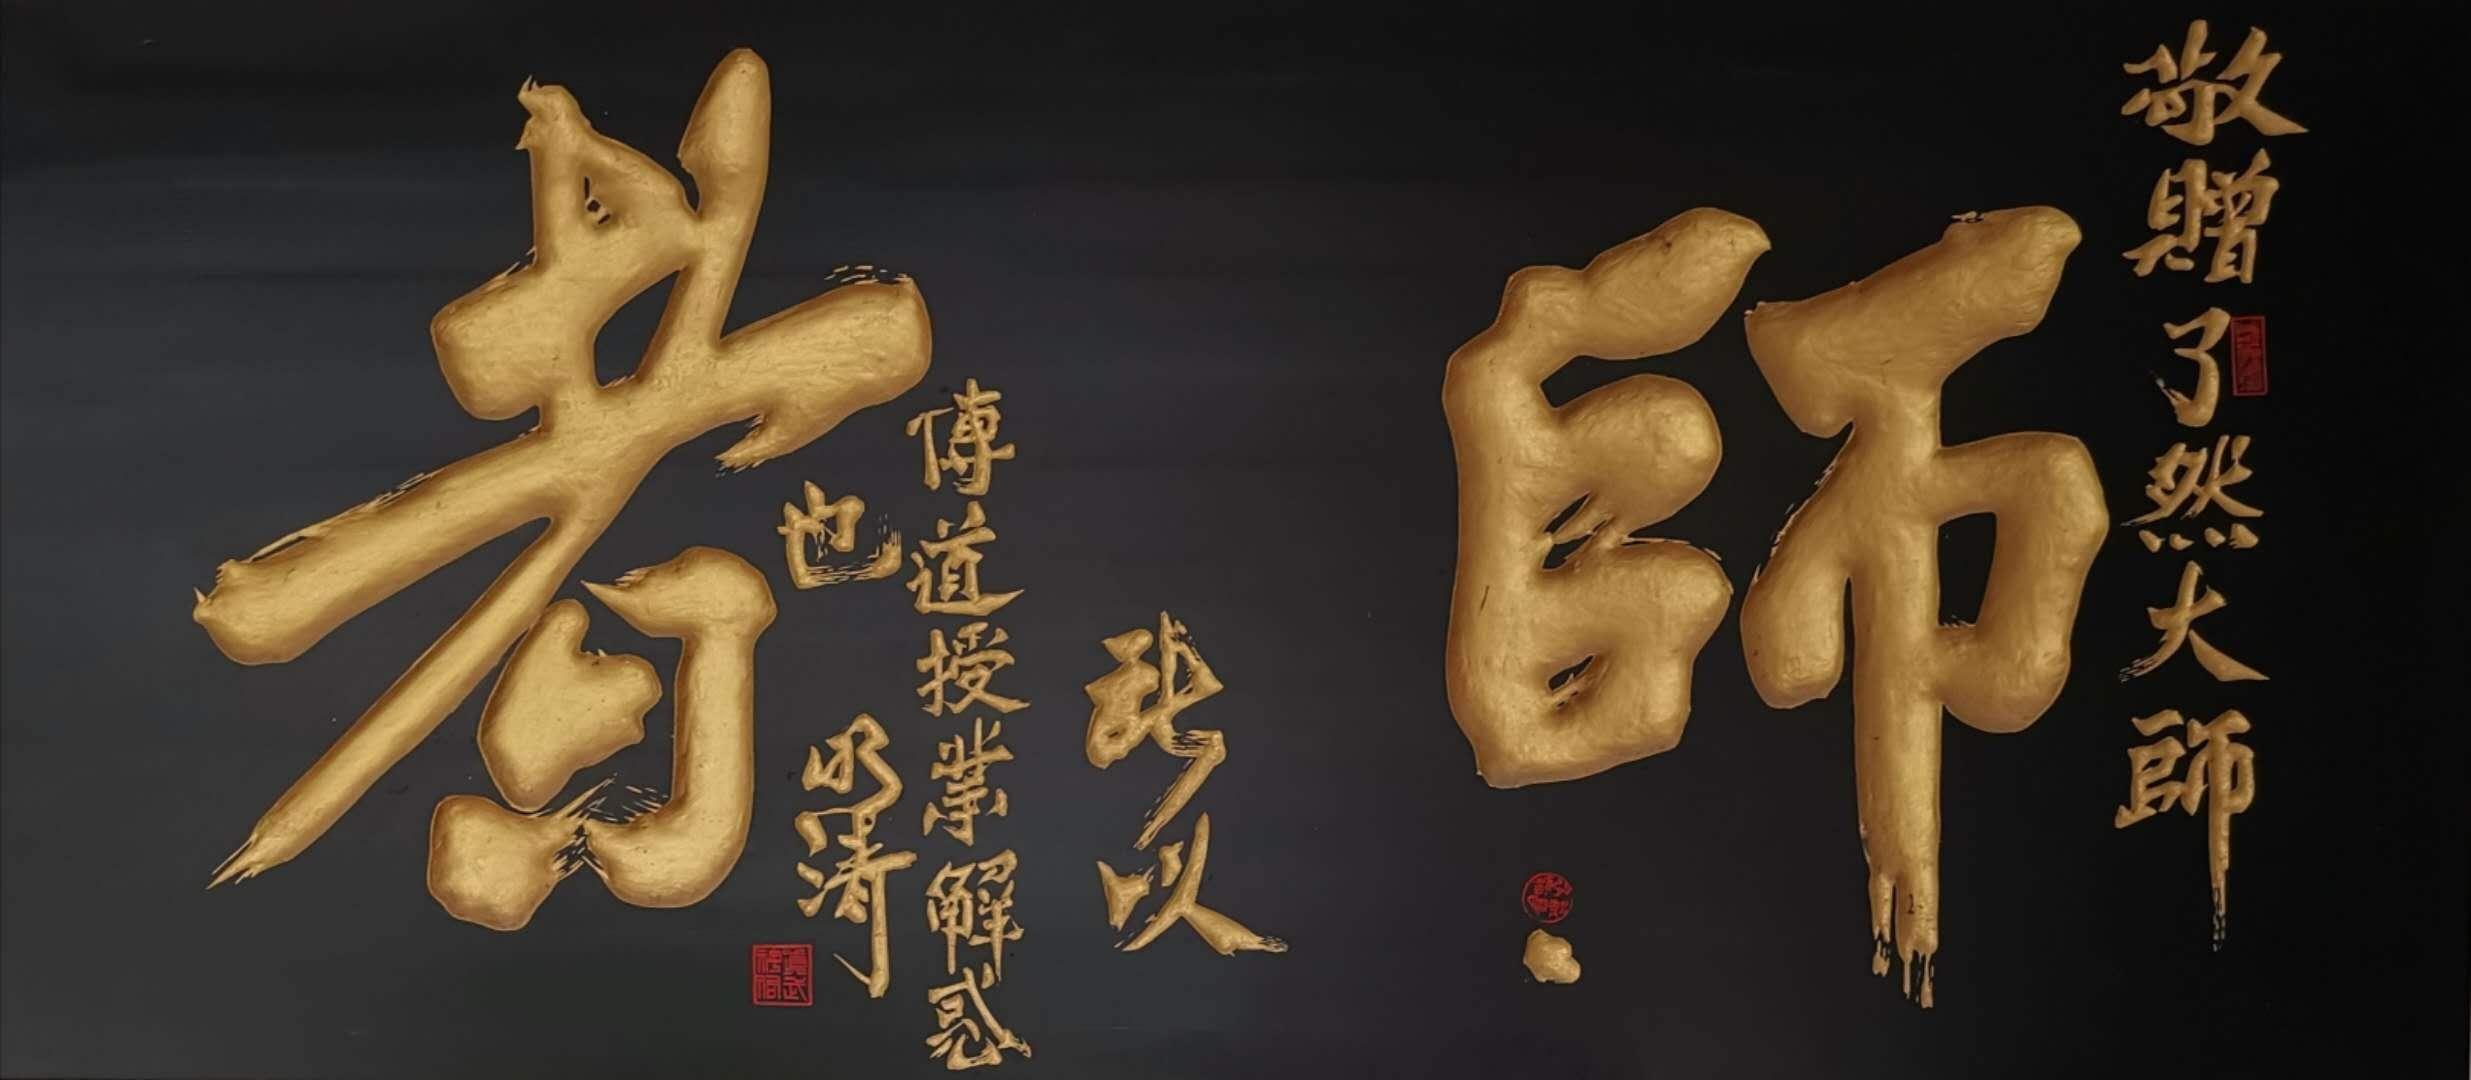 敬贈了然大師
師者
所以
傳道授業解惑
也
明濤